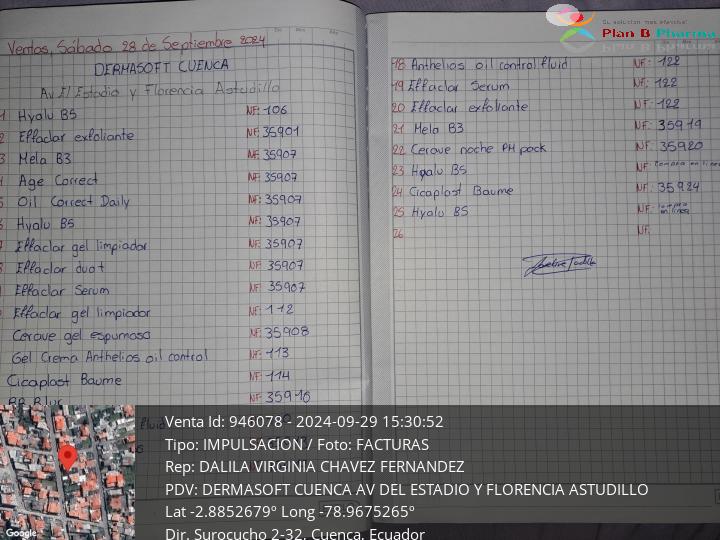 Ventas, Sábado 28 de Septiembre 2024
DERMASOFT CUENCA
Av El Estadio y Florencia Astudillo
1 Hyalu B5 NF: 106
2 Effaclar exfoliante NF: 35901
3 Mela B3 NF: 35907
Age Correct NF: 35907
Oil Correct Daily NF: 35907
Hyalu B5 NF: 35907
Effaclar gel limpiador NF: 35907
Effaclar duo+ NF: 35907
Effaclar Serum NF: 35907
Effaclar gel limpiador NF: 112
Cerave gel espumoso NF: 35908
Gel Crema Anthelios oil control NF: 113
Cicaplast Baume NF: 114
BB Blur NF: 35910
fluid
18 Anthelios oil control fluid NF: 122
19 Effaclar Serum NF: 122
20 Effaclar exfoliante NF: 122
21 Mela B3 NF: 35919
22 Cerave noche PM pack NF: 35920
23 Hyalu B5 NF: compra en linea
24 Cicaplast Baume NF: 35924
25 Hyalu B5 NF: compra en linea
26 NF:
Su solución más efectiva!
Plan B Pharma
Venta Id: 946078 - 2024-09-29 15:30:52
Tipo: IMPULSACION / Foto: FACTURAS
Rep: DALILA VIRGINIA CHAVEZ FERNANDEZ
PDV: DERMASOFT CUENCA AV DEL ESTADIO Y FLORENCIA ASTUDILLO
Lat -2.8852679º Long -78.9675265º
Dir. Surocucho 2-32, Cuenca, Ecuador
Google